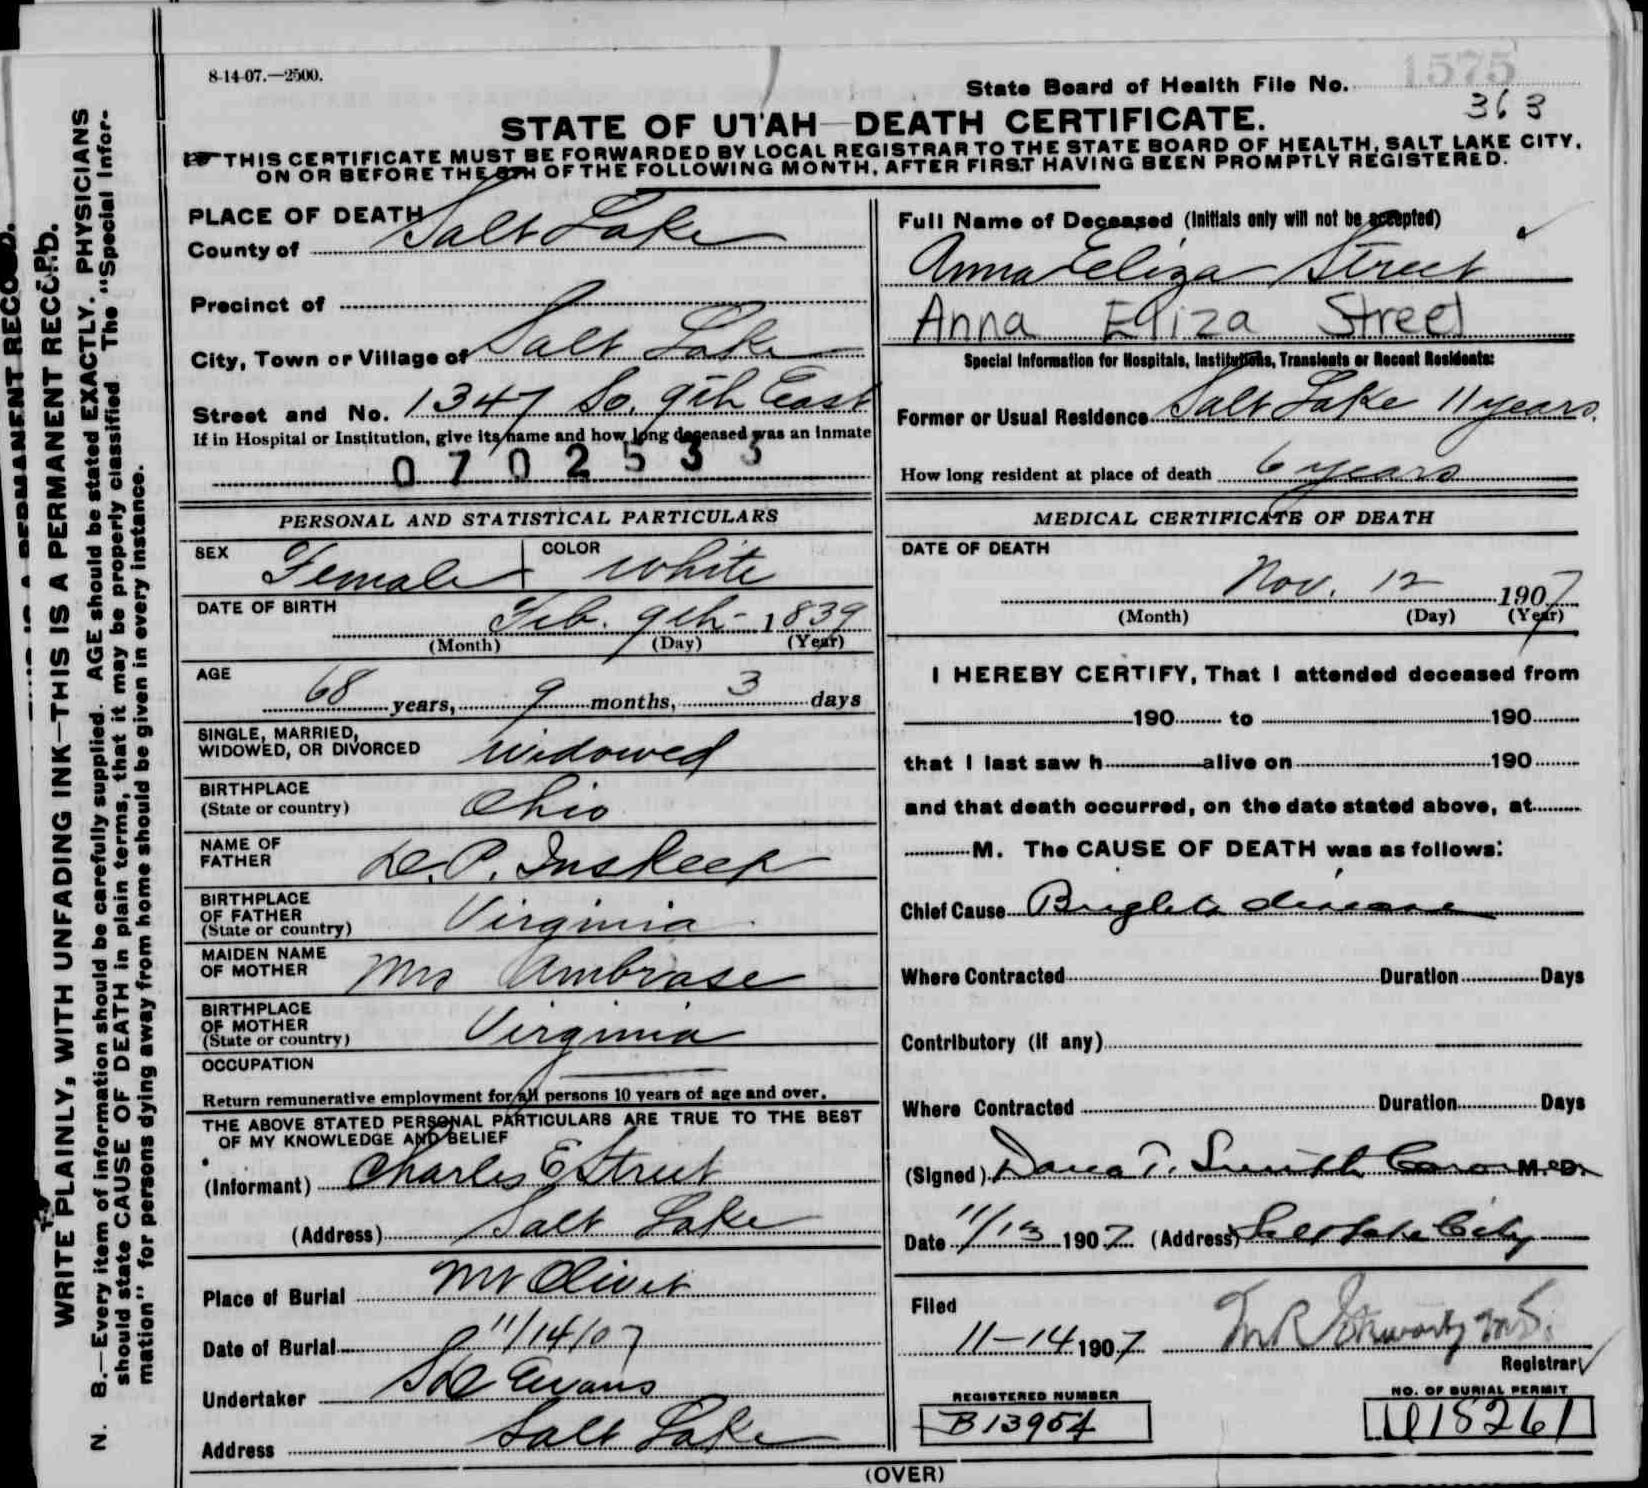 8-14-07.—2500.
State Board of Health File No. 1575
363
STATE OF UTAH—DEATH CERTIFICATE.
THIS CERTIFICATE MUST BE FORWARDED BY LOCAL REGISTRAR TO THE STATE BOARD OF HEALTH, SALT LAKE CITY,
ON OR BEFORE THE 5TH OF THE FOLLOWING MONTH, AFTER FIRST HAVING BEEN PROMPTLY REGISTERED.
PLACE OF DEATH
County of Salt Lake
Precinct of
City, Town or Village of Salt Lake
Street and No. 1347 So. 9th East
If in Hospital or Institution, give its name and how long deceased was an inmate
0702533
Full Name of Deceased (Initials only will not be accepted)
Anna Eliza Street
Anna Eliza Street
Special Information for Hospitals, Institutions, Transients or Recent Residents:
Former or Usual Residence Salt Lake 11 years.
How long resident at place of death 6 years
PERSONAL AND STATISTICAL PARTICULARS
SEX Female COLOR White
DATE OF BIRTH Feb. 9th - 1839
(Month) (Day) (Year)
AGE 68 years, 9 months, 3 days
SINGLE, MARRIED,
WIDOWED, OR DIVORCED Widowed
BIRTHPLACE
(State or country) Ohio
NAME OF
FATHER D. P. Inskeep
BIRTHPLACE
OF FATHER
(State or country) Virginia
MAIDEN NAME
OF MOTHER Mrs Ambrose
BIRTHPLACE
OF MOTHER
(State or country) Virginia
OCCUPATION
Return remunerative employment for all persons 10 years of age and over.
THE ABOVE STATED PERSONAL PARTICULARS ARE TRUE TO THE BEST
OF MY KNOWLEDGE AND BELIEF
(Informant) Charles E Street
(Address) Salt Lake
Place of Burial Mt Olivet
Date of Burial 11/14/07
Undertaker S D Evans
Address Salt Lake
MEDICAL CERTIFICATE OF DEATH
DATE OF DEATH
Nov. 12 1907
(Month) (Day) (Year)
I HEREBY CERTIFY, That I attended deceased from
190 to 190
that I last saw h alive on 190
and that death occurred, on the date stated above, at
M. The CAUSE OF DEATH was as follows:
Chief Cause Brights disease
Where Contracted Duration Days
Contributory (if any)
Where Contracted Duration Days
(Signed) Dana T. Smith M. D.
Date 11/13 1907 (Address) Salt Lake City
Filed
11-14 1907
Registrar
REGISTERED NUMBER
B13954
NO. OF BURIAL PERMIT
18261
(OVER)
WRITE PLAINLY, WITH UNFADING INK—THIS IS A PERMANENT RECORD.
N. B.—Every item of information should be carefully supplied. AGE should be stated EXACTLY. PHYSICIANS
should state CAUSE OF DEATH in plain terms, that it may be properly classified. The "Special Infor-
mation" for persons dying away from home should be given in every instance.